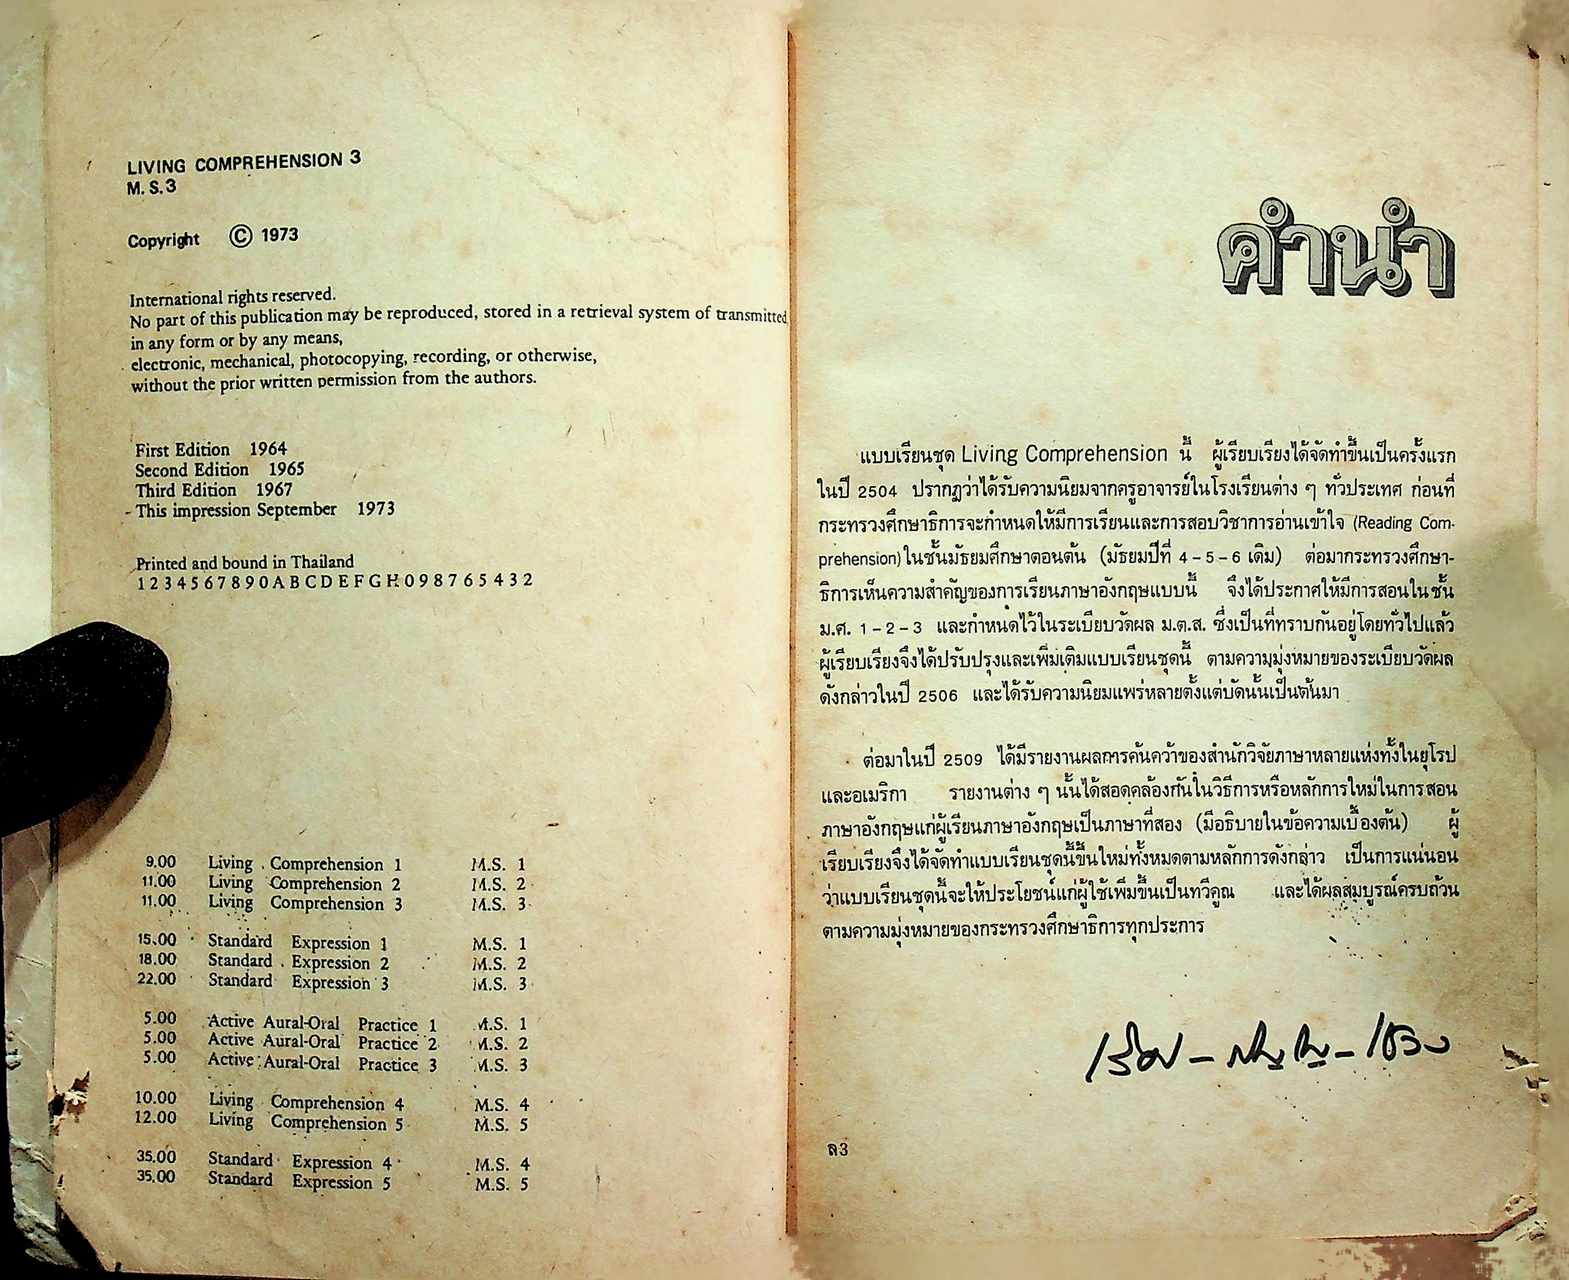 LIVING COMPREHENSION 3
M. S. 3
Copyright © 1973
International rights reserved.
No part of this publication may be reproduced, stored in a retrieval system of transmitted
in any form or by any means,
electronic, mechanical, photocopying, recording, or otherwise,
without the prior written permission from the authors.
First Edition 1964
Second Edition 1965
Third Edition 1967
This impression September 1973
Printed and bound in Thailand
1 2 3 4 5 6 7 8 9 0 A B C D E F G H 0 9 8 7 6 5 4 3 2
9.00 Living Comprehension 1 M.S. 1
11.00 Living Comprehension 2 M.S. 2
11.00 Living Comprehension 3 M.S. 3
15.00 Standard Expression 1 M.S. 1
18.00 Standard Expression 2 M.S. 2
22.00 Standard Expression 3 M.S. 3
5.00 Active Aural-Oral Practice 1 M.S. 1
5.00 Active Aural-Oral Practice 2 M.S. 2
5.00 Active Aural-Oral Practice 3 M.S. 3
10.00 Living Comprehension 4 M.S. 4
12.00 Living Comprehension 5 M.S. 5
35.00 Standard Expression 4 M.S. 4
35.00 Standard Expression 5 M.S. 5
คำนำ
แบบเรียนชุด Living Comprehension นี้ ผู้เรียบเรียงได้จัดทำขึ้นเป็นครั้งแรก
ในปี 2504 ปรากฏว่าได้รับความนิยมจากครูอาจารย์ในโรงเรียนต่าง ๆ ทั่วประเทศ ก่อนที่
กระทรวงศึกษาธิการจะกำหนดให้มีการเรียนและการสอบวิชาการอ่านเข้าใจ (Reading Com-
prehension) ในชั้นมัธยมศึกษาตอนต้น (มัธยมปีที่ 4 – 5 – 6 เดิม) ต่อมากระทรวงศึกษา-
ธิการเห็นความสำคัญของการเรียนภาษาอังกฤษแบบนี้ จึงได้ประกาศให้มีการสอนในชั้น
ม.ศ. 1 – 2 – 3 และกำหนดไว้ในระเบียบวัดผล ม.ต.ส. ซึ่งเป็นที่ทราบกันอยู่โดยทั่วไปแล้ว
ผู้เรียบเรียงจึงได้ปรับปรุงและเพิ่มเติมแบบเรียนชุดนี้ ตามความมุ่งหมายของระเบียบวัดผล
ดังกล่าวในปี 2506 และได้รับความนิยมแพร่หลายตั้งแต่บัดนั้นเป็นต้นมา
ต่อมาในปี 2509 ได้มีรายงานผลการค้นคว้าของสำนักวิจัยภาษาหลายแห่งทั้งในยุโรป
และอเมริกา รายงานต่าง ๆ นั้นได้สอดคล้องกันในวิธีการหรือหลักการใหม่ในการสอน
ภาษาอังกฤษแก่ผู้เรียนภาษาอังกฤษเป็นภาษาที่สอง (มีอธิบายในข้อความเบื้องต้น) ผู้
เรียบเรียงจึงได้จัดทำแบบเรียนชุดนี้ขึ้นใหม่ทั้งหมดตามหลักการดังกล่าว เป็นการแน่นอน
ว่าแบบเรียนชุดนี้จะให้ประโยชน์แก่ผู้ใช้เพิ่มขึ้นเป็นทวีคูณ และได้ผลสมบูรณ์ครบถ้วน
ตามความมุ่งหมายของกระทรวงศึกษาธิการทุกประการ
ล3